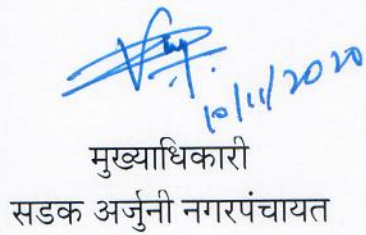 10/11/2020
मुख्याधिकारी
सडक अर्जुनी नगरपंचायत